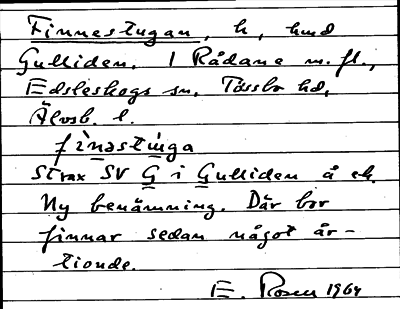 Finnestugan, h, hmd
Gulliden. 1 Rådane m. fl.,
Edsleskogs sn, Tössbo hd,
Älvsb. l.
fìnastúga
Strax SV G i Gulliden å ek.
Ny benämning. Där bor
finnar sedan något år-
tionde.
E. Rosen 1964